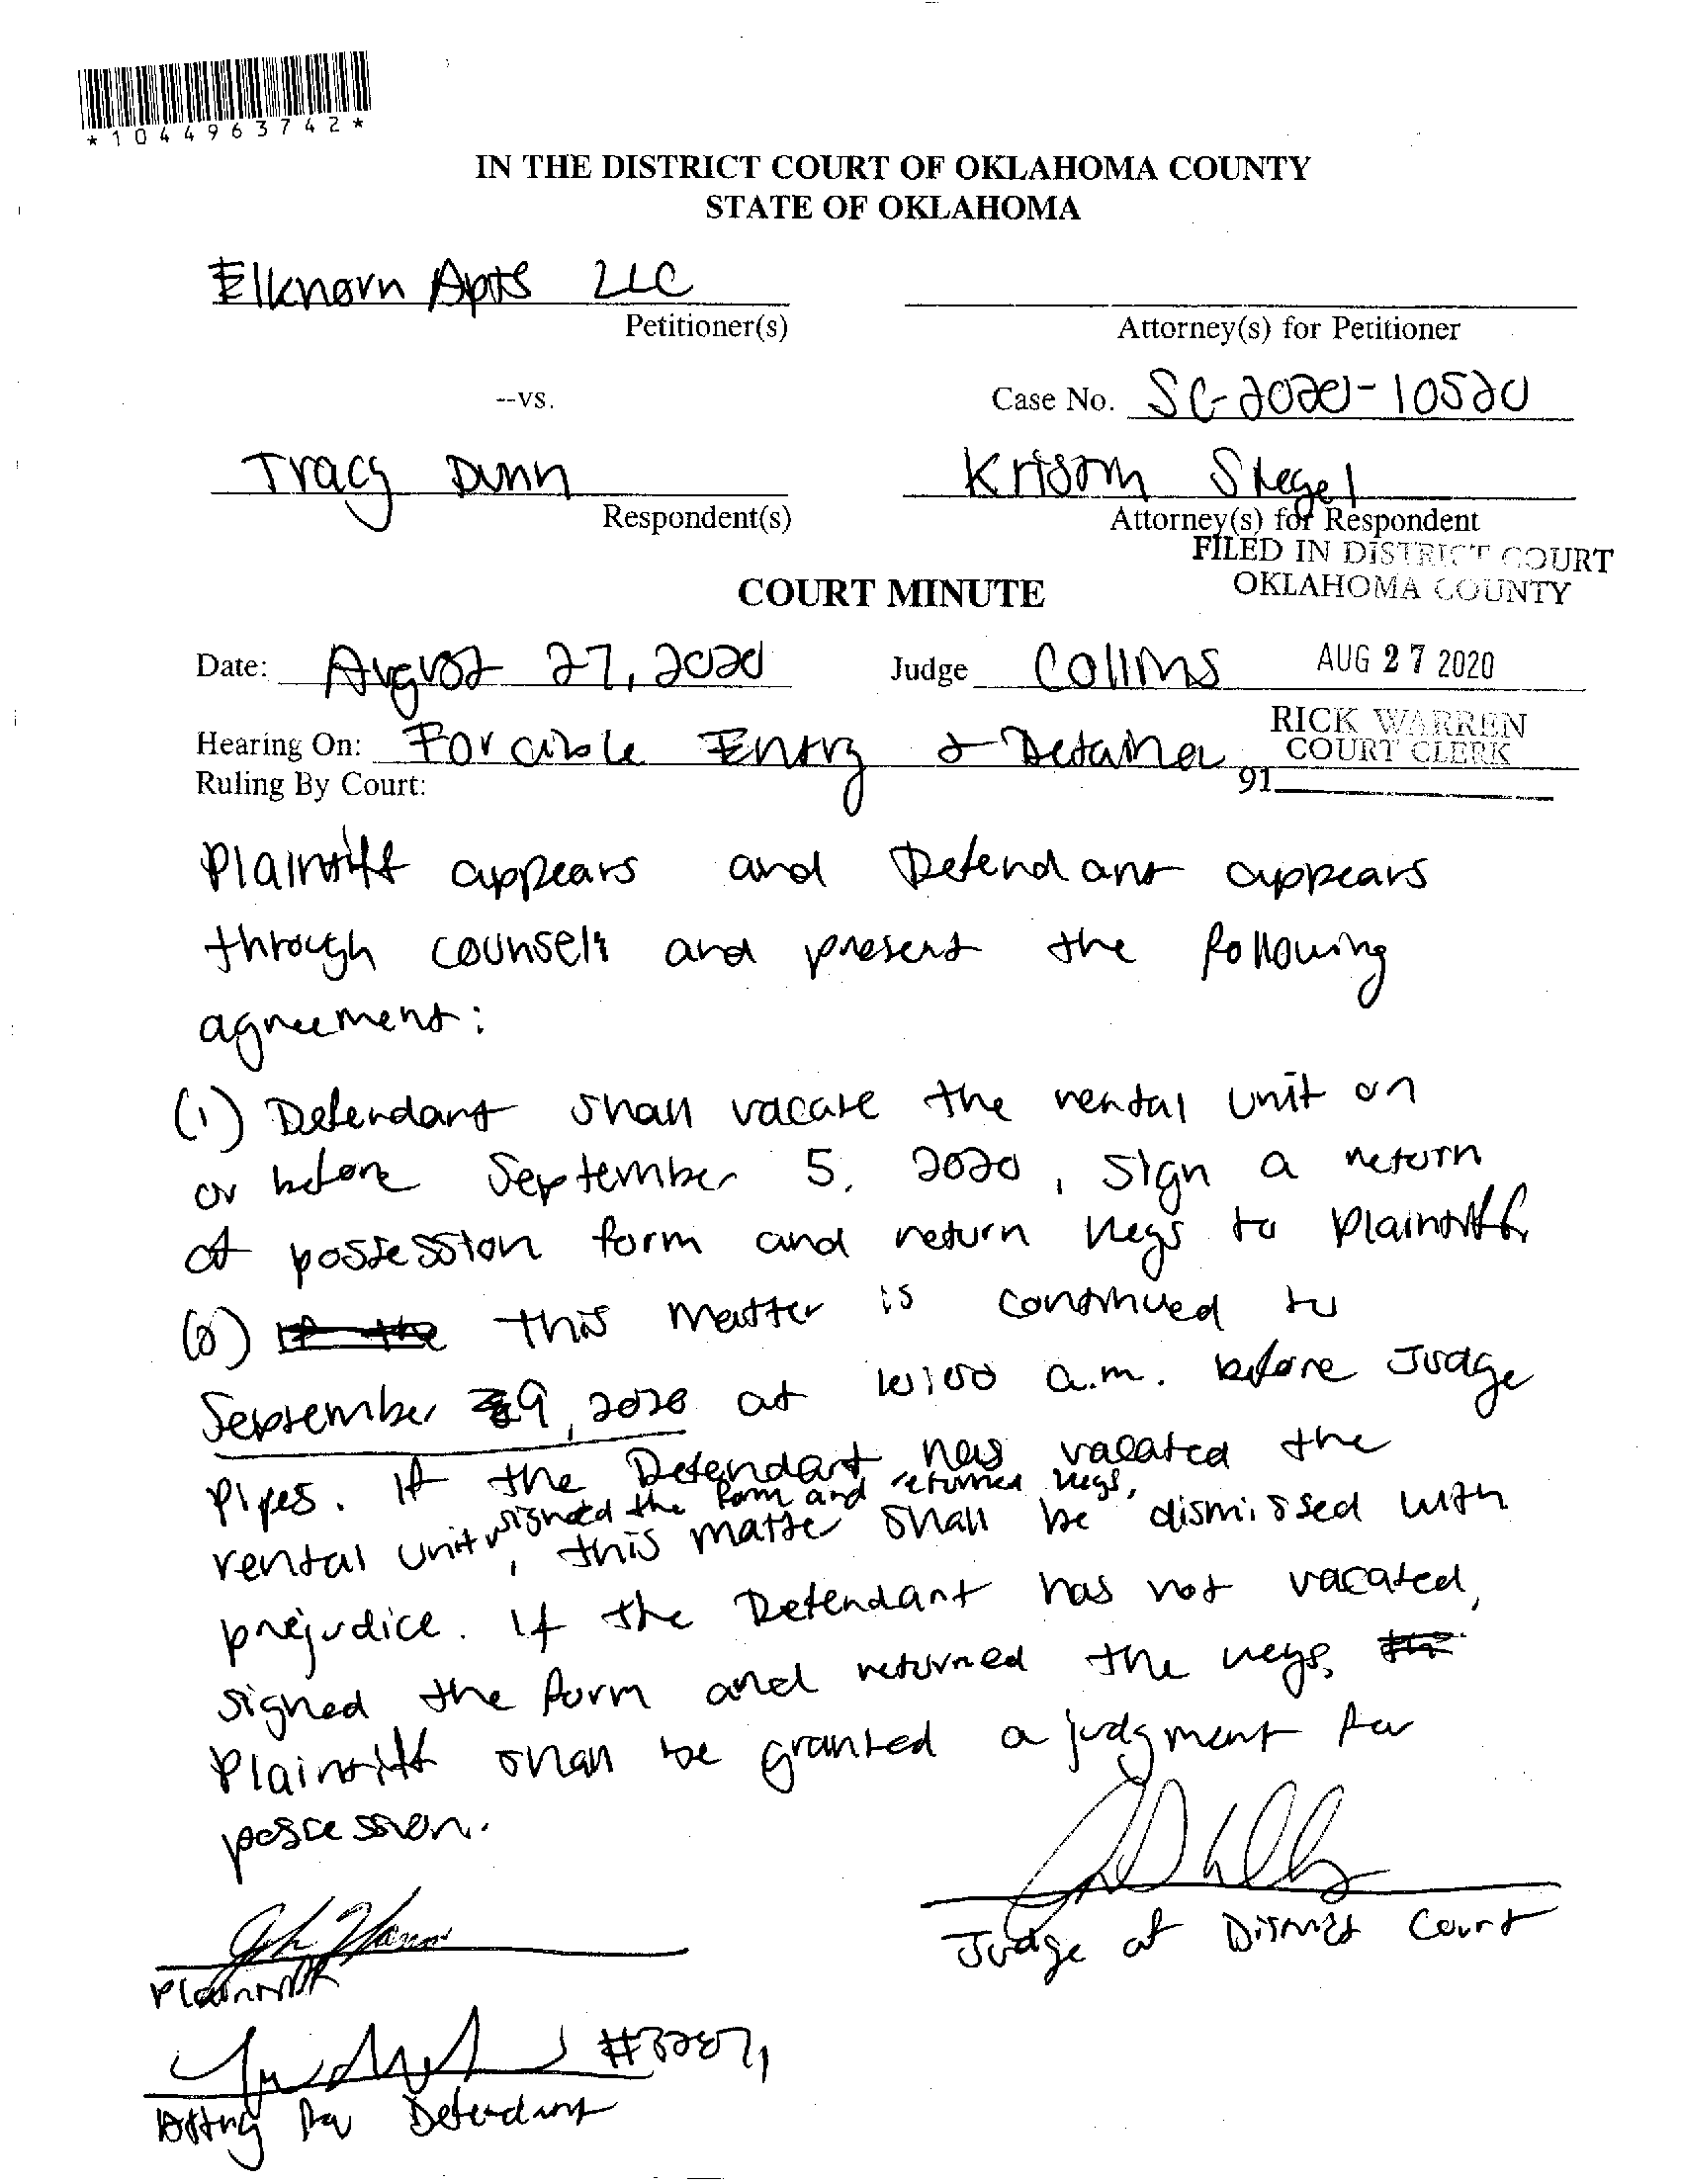 *1044963742*
IN THE DISTRICT COURT OF OKLAHOMA COUNTY
STATE OF OKLAHOMA
Elkhorn Apts LLC
Petitioner(s)
Attorney(s) for Petitioner
--vs.
Case No. SC-2020-10520
Tracy Dunn
Respondent(s)
Siegel
Attorney(s) for Respondent
FILED IN DISTRICT COURT
OKLAHOMA COUNTY
COURT MINUTE
Date: August 27, 2020
Judge Collins
AUG 27 2020
Hearing On: Forcible Entry & Detainer
RICK WARREN
COURT CLERK
Ruling By Court:
91
Plaintiff appears and Defendant appears
through counsel and present the following
agreement:
(1) Defendant shall vacate the rental unit on
or before September 5, 2020, sign a return
of possession form and return keys to Plaintiff
(2) this matter is continued to
September 9, 2020 at 10:00 a.m. before Judge
Pipes. If the Defendant has vacated the
signed the form and returned keys,
rental unit, this matter shall be dismissed with
prejudice. If the Defendant has not vacated,
signed the form and returned the keys,
Plaintiff shall be granted a judgment for
possession.
Judge of District Court
Plaintiff
Attny for Defendant